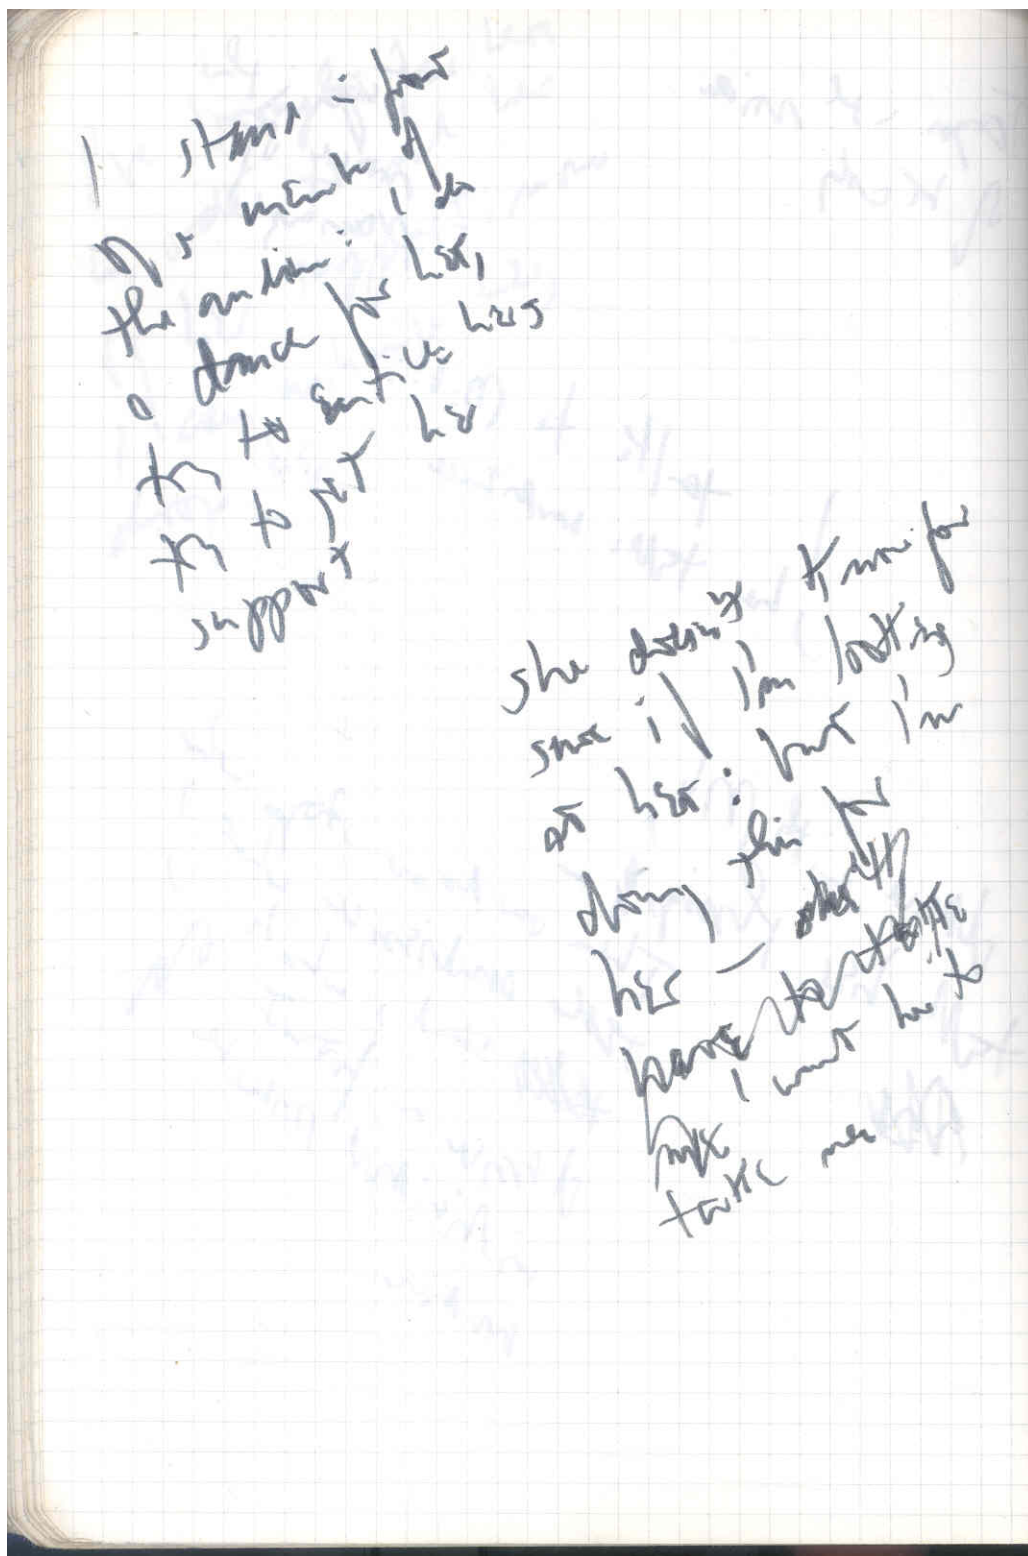 I stand in front
of a member of
the audience. I do
a dance for her,
try to entice her,
try to get her
support
she doesn't know for
sure if I'm looking
at her. but I'm
doing this for
her —
have to
I want her to
take me